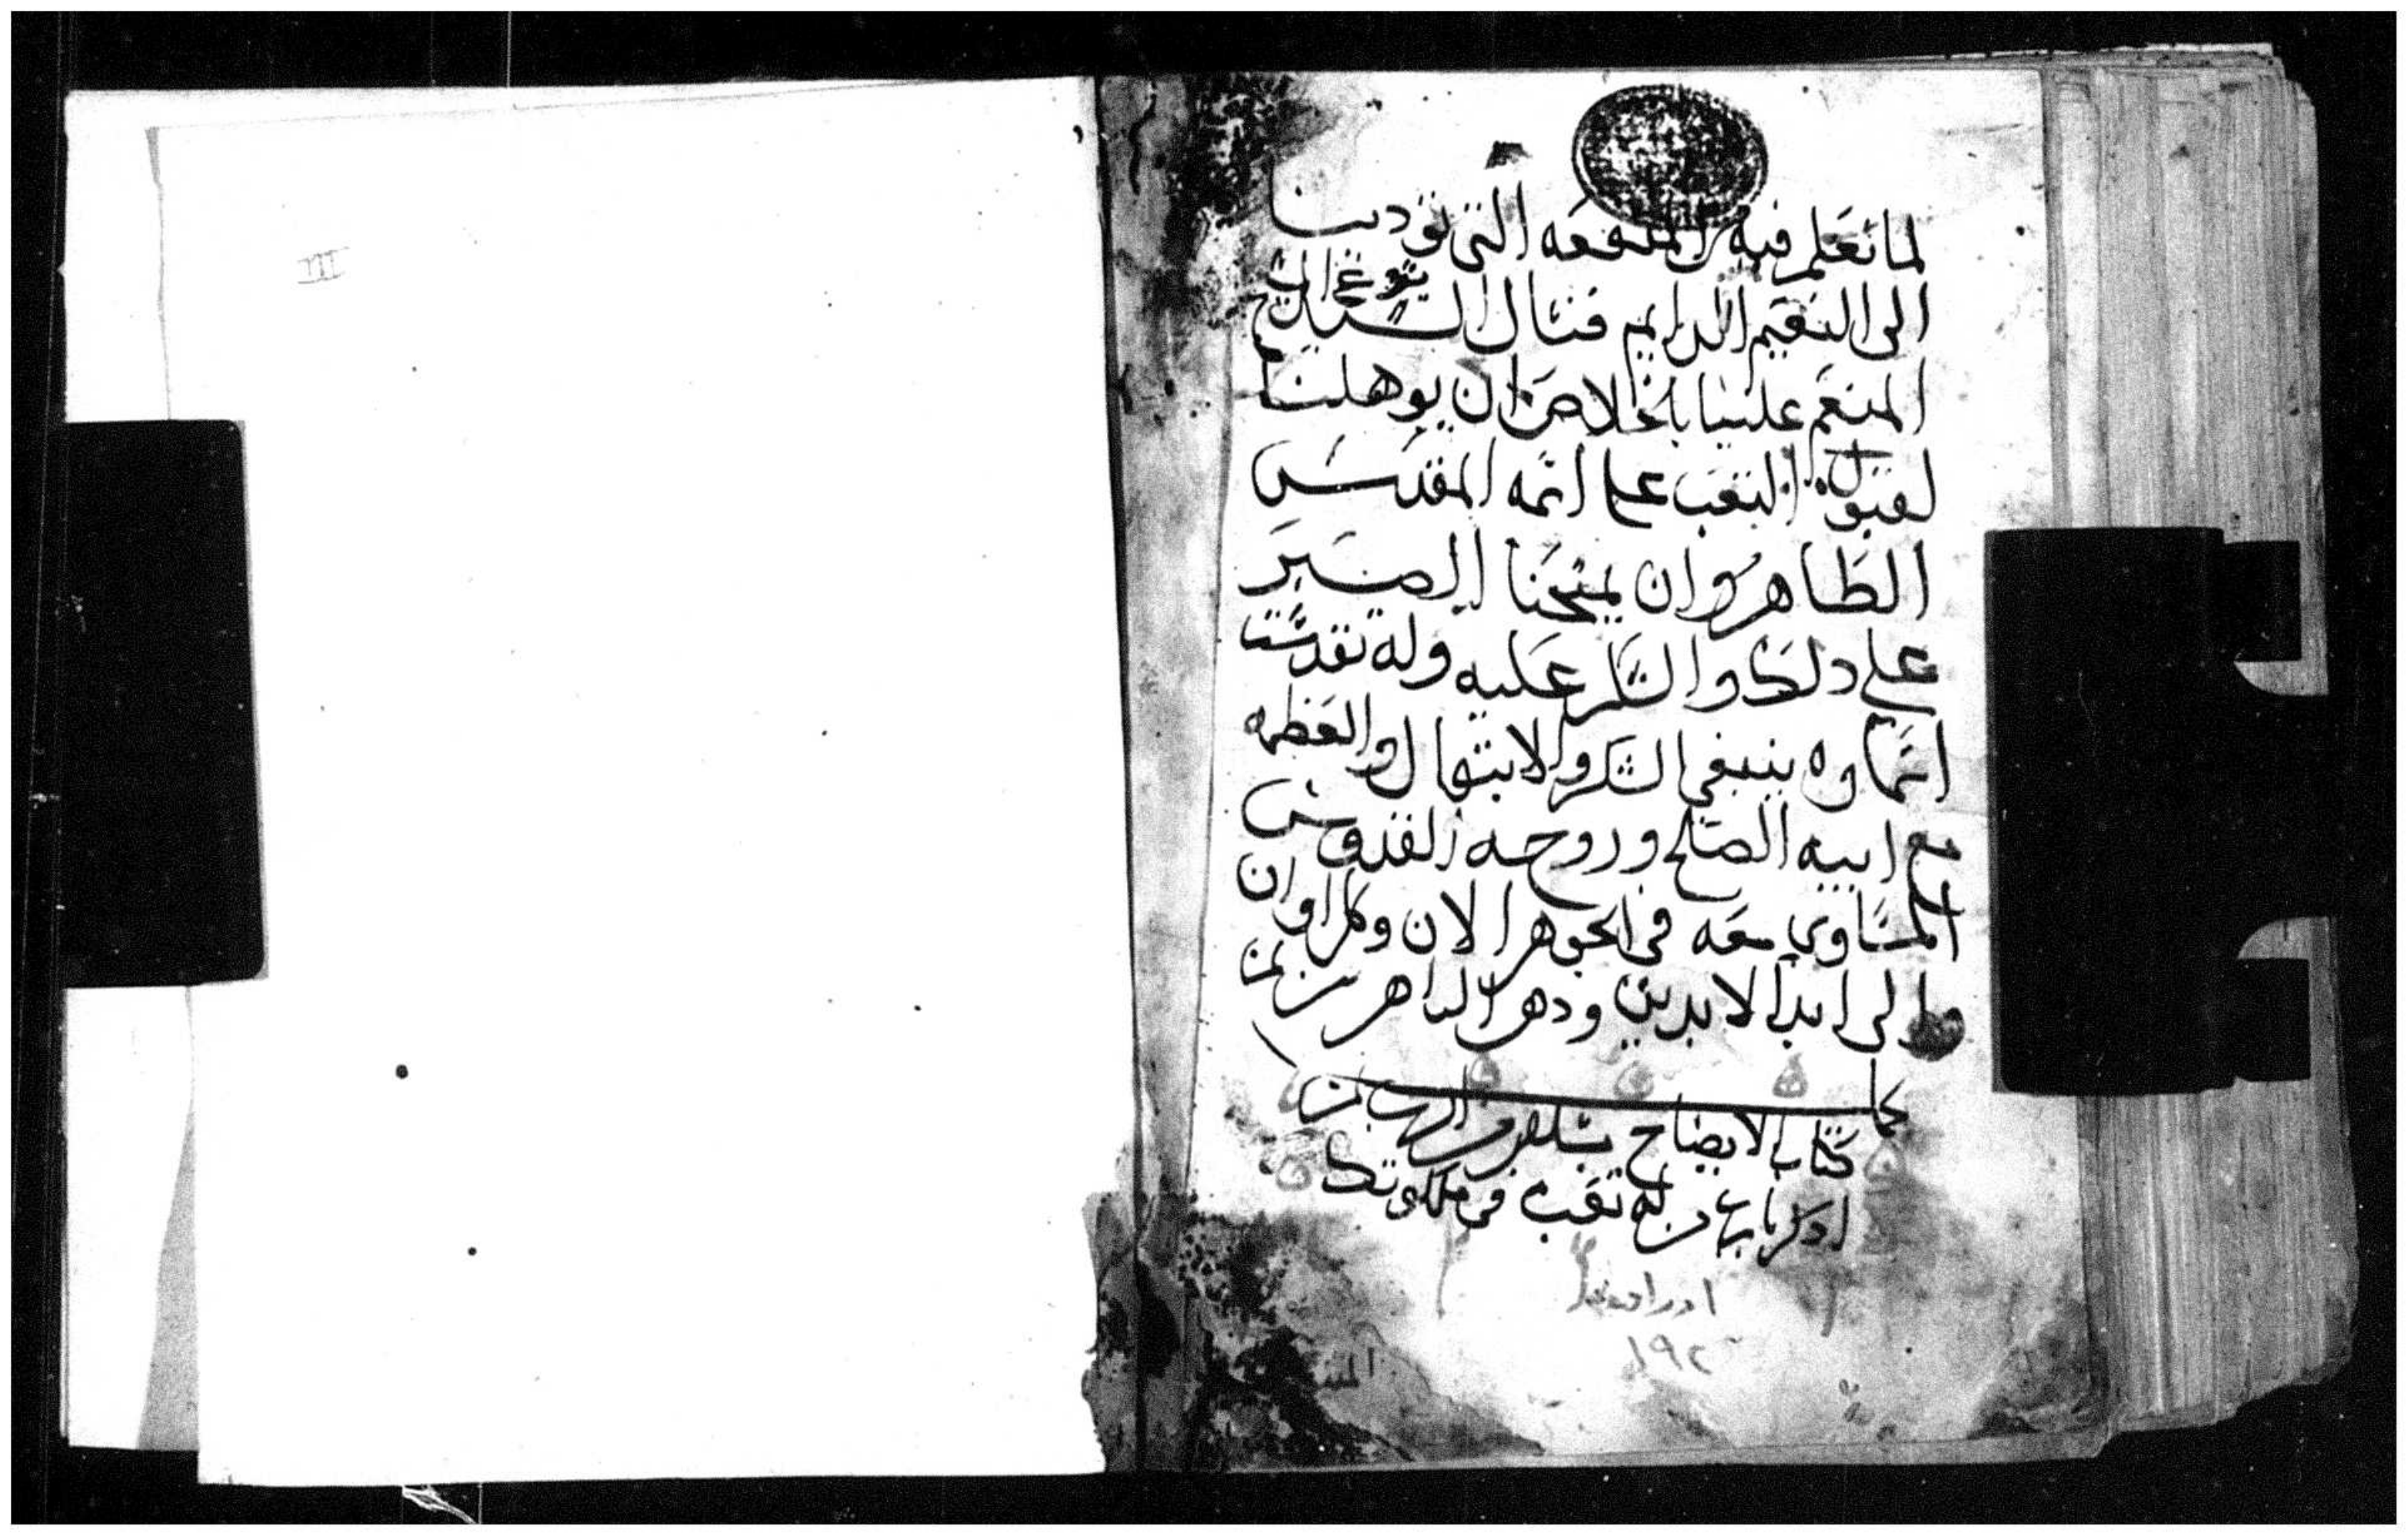 لما نعلم فيه من المنفعه التي تودينا
الى النعيم الدايم فنسال السيد
يسوع المسيح
المنعم علينا بالخلاص ان يوهلنا
لقبول التعب على اسمه المقدس
الطاهر وان يمنحنا الصبر
على دلك والشكر عليه وله تقدست
اسماوه ينبغي الشكر والابتهال والعظمه
مع ابيه الصالح وروحه القدوس
المساوي معه في الجوهر الان وكل اوان
والى ابد الابدين ودهر الداهرين امين
كمل
كتاب الايضاح بسلام من الرب امين
ادكر يارب من له تعب في ملكوتك
١٩٢
III